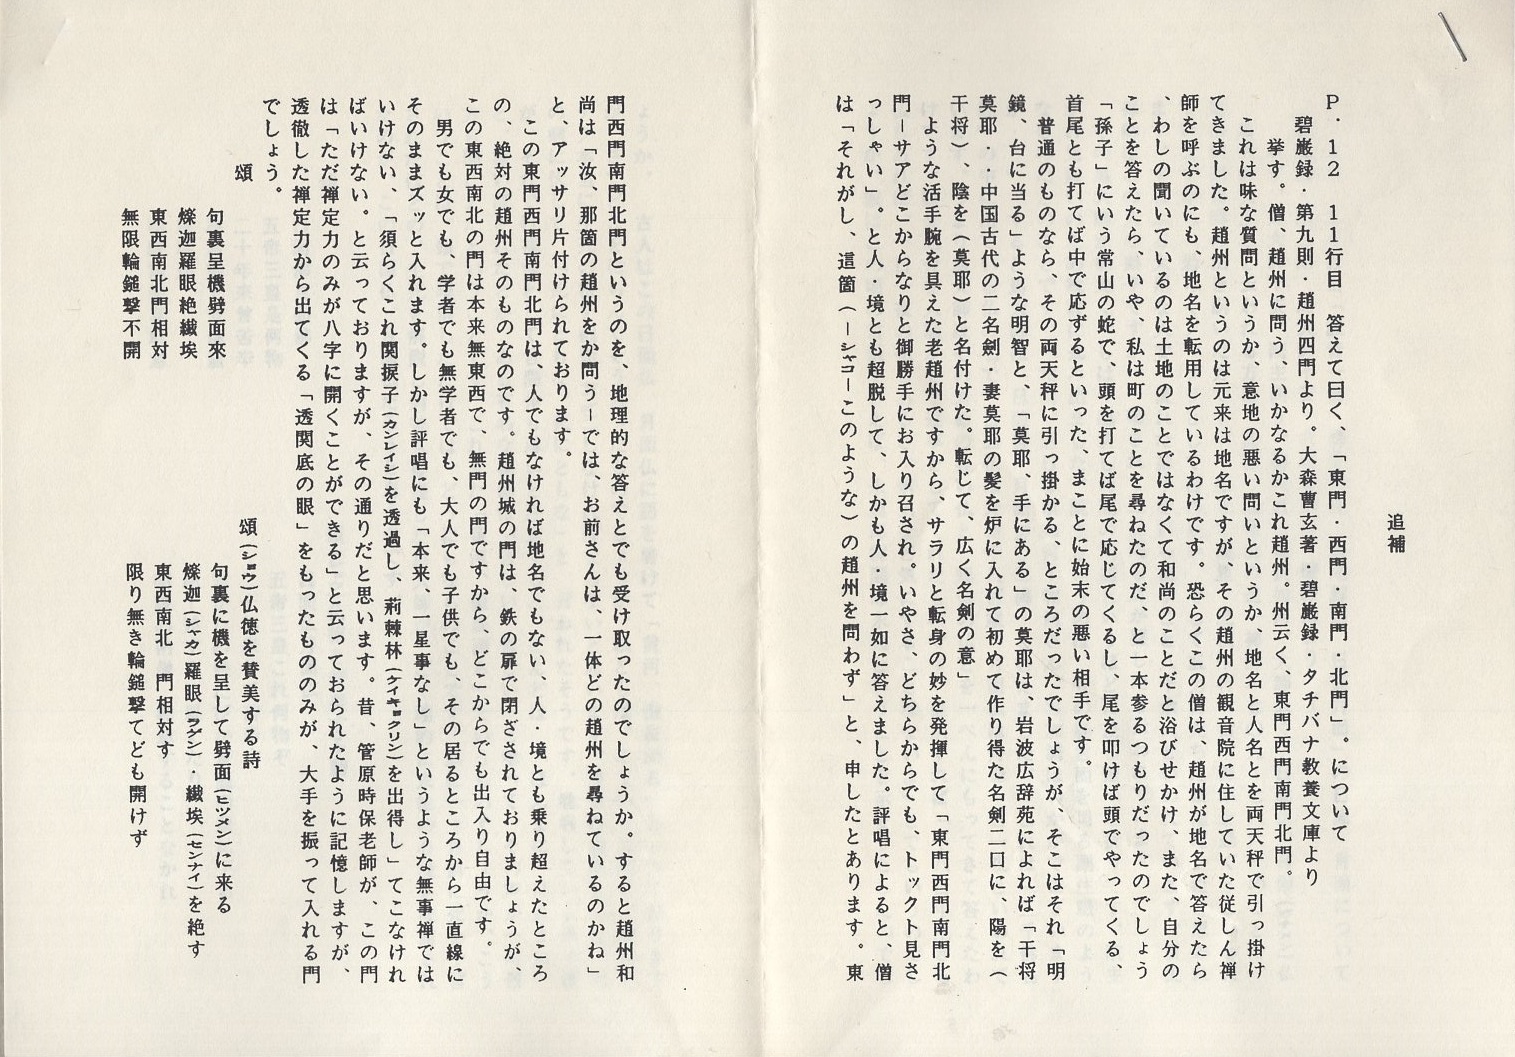 追補
P．12　11行目　答えて曰く、「東門・西門・南門・北門」。について
碧巌録・第九則・趙州四門より。大森曹玄著・碧巌録・タチバナ教養文庫より
挙す。僧、趙州に問う、いかなるかこれ趙州。州云く、東門西門南門北門。
これは味な質問というか、意地の悪い問いというか、地名と人名とを両天秤で引っ掛け
てきました。趙州というのは元来は地名ですが、その趙州の観音院に住していた従しん禅
師を呼ぶのにも、地名を転用しているわけです。恐らくこの僧は、趙州が地名で答えたら
、わしの聞いているのは土地のことではなくて和尚のことだと浴びせかけ、また、自分の
ことを答えたら、いや、私は町のことを尋ねたのだ、と一本参るつもりだったのでしょう
「孫子」にいう常山の蛇で、頭を打てば尾で応じてくるし、尾を叩けば頭でやってくる、
首尾とも打てば中で応ずるといった、まことに始末の悪い相手です。
普通のものなら、その両天秤に引っ掛かる、ところだったでしょうが、そこはそれ「明
鏡、台に当る」ような明智と、「莫耶、手にある」の莫耶は、岩波広辞苑によれば「干将
莫耶・・中国古代の二名劍・妻莫耶の髪を炉に入れて初めて作り得た名劍二口に、陽を（
干将）、陰を（莫耶）と名付けた。転じて、広く名劍の意」
ような活手腕を具えた老趙州ですから、サラリと転身の妙を発揮して「東門西門南門北
門－サアどこからなりと御勝手にお入り召され。いやさ、どちらからでも、トックト見さ
っしゃい」。と人・境とも超脱して、しかも人・境一如に答えました。評唱によると、僧
は「それがし、這箇（－シャコ－このような）の趙州を問わず」と、申したとあります。東
門西門南門北門というのを、地理的な答えとでも受け取ったのでしょうか。すると趙州和
尚は「汝、那箇の趙州をか問う－では、お前さんは、一体どの趙州を尋ねているのかね」
と、アッサリ片付けられております。
この東門西門南門北門は、人でもなければ地名でもない、人・境とも乗り超えたところ
の、絶対の趙州そのものなのです。趙州城の門は、鉄の扉で閉ざされておりましょうが、
この東西南北の門は本来無東西で、無門の門ですから、どこからでも出入り自由です。
男でも女でも、学者でも無学者でも、大人でも子供でも、その居るところから一直線に
そのままズッと入れます。しかし評唱にも「本来、一星事なし」というような無事禅では
いけない、「須らくこれ関捩子（カンレイシ）を透過し、荊棘林（ケイキョクリン）を出得し」てこなけれ
ばいけない。と云っておりますが、その通りだと思います。昔、管原時保老師が、この門
は「ただ禅定力のみが八字に開くことができる」と云っておられたように記憶しますが、
透徹した禅定力から出てくる「透関底の眼」をもったもののみが、大手を振って入れる門
でしょう。
頌
句裏呈機劈面來
爍迦羅眼絶纖埃
東西南北門相対
無限輪鎚撃不開
頌（ショウ）仏徳を賛美する詩
句裏に機を呈して劈面（ヒツメン）に来る
爍迦（シャカ）羅眼（ラゲン）・纖埃（センナイ）を絶す
東西南北　門相対す
限り無き輪鎚撃てども開けず